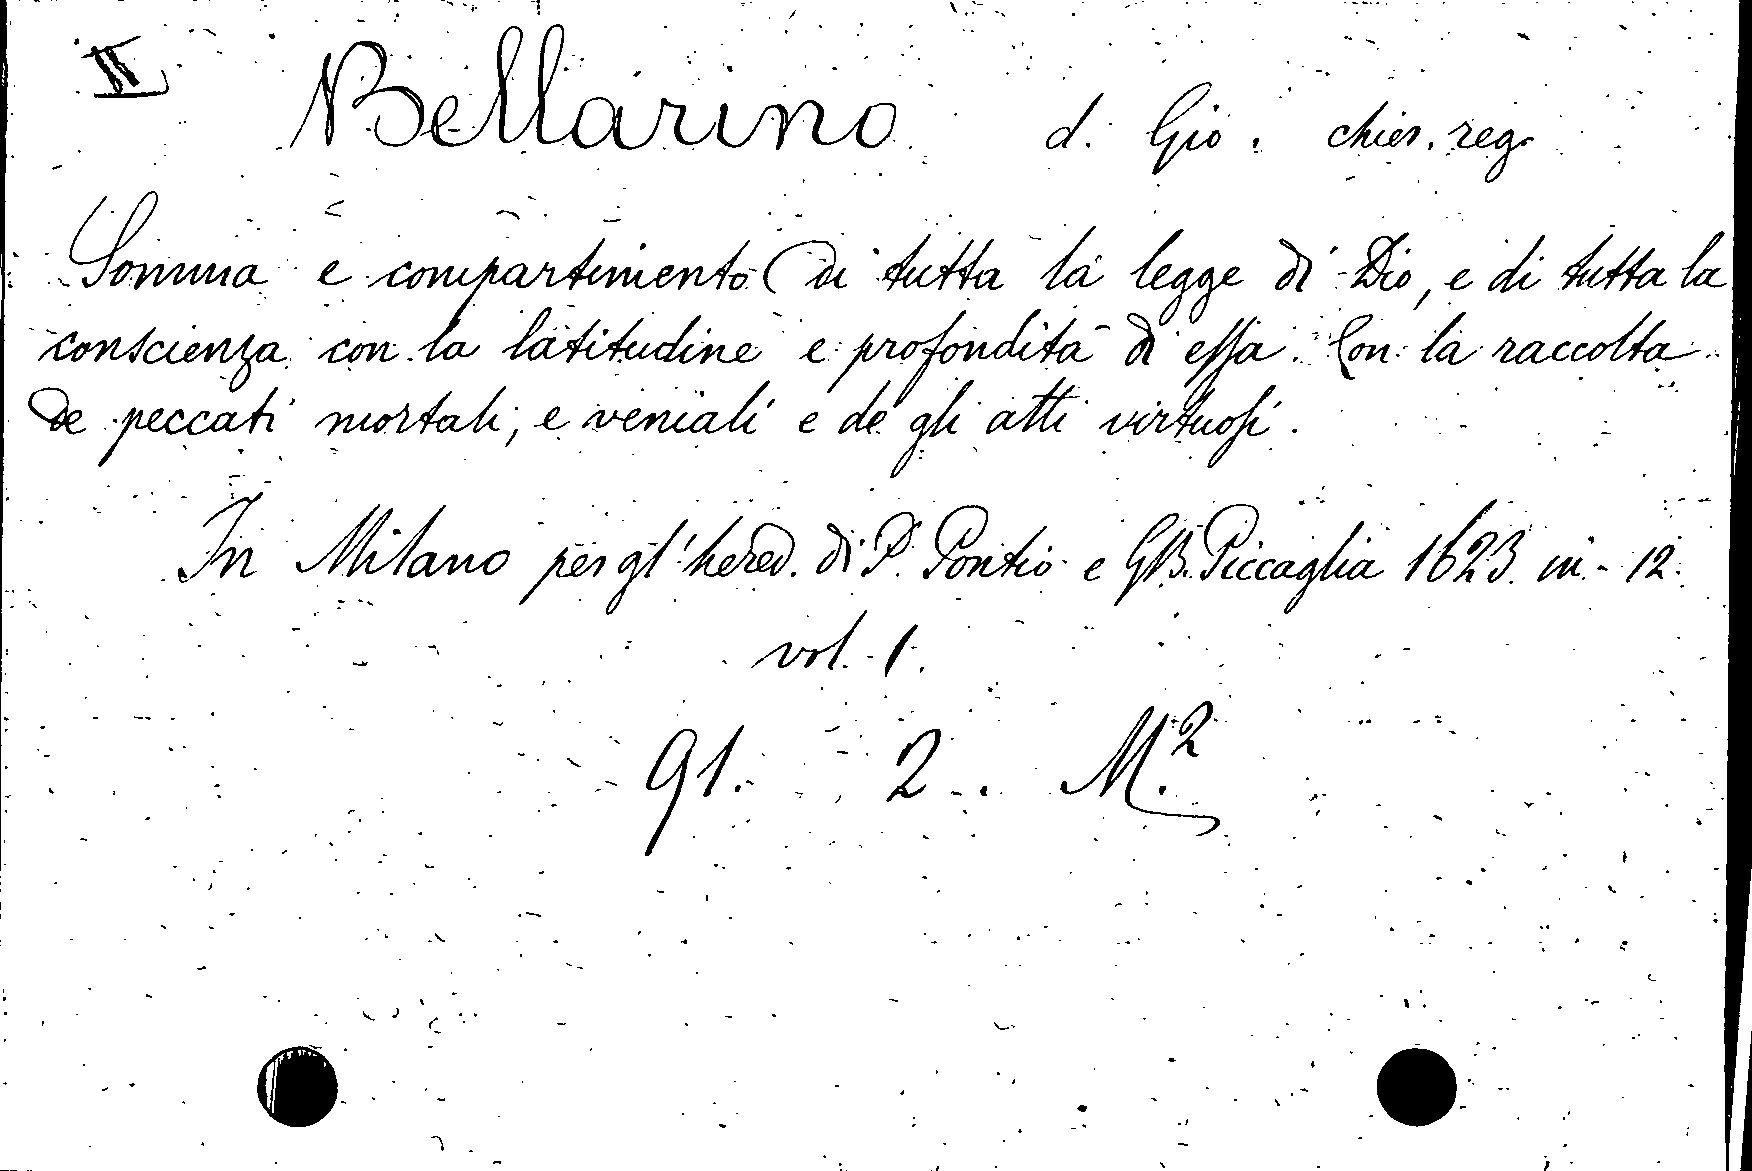 II Bellarino d. Gio. chier. reg.
Somma e compartimento di tutta la legge di Dio, e di tutta la
conscienza con la latitudine e profondità di essa. Con la raccolta
de peccati mortali, e veniali e de gli atti virtuosi.
In Milano per gl'hered. di P. Pontio e GB. Piccaglia 1623 in-12.
vol. 1.
91. 2. M.2